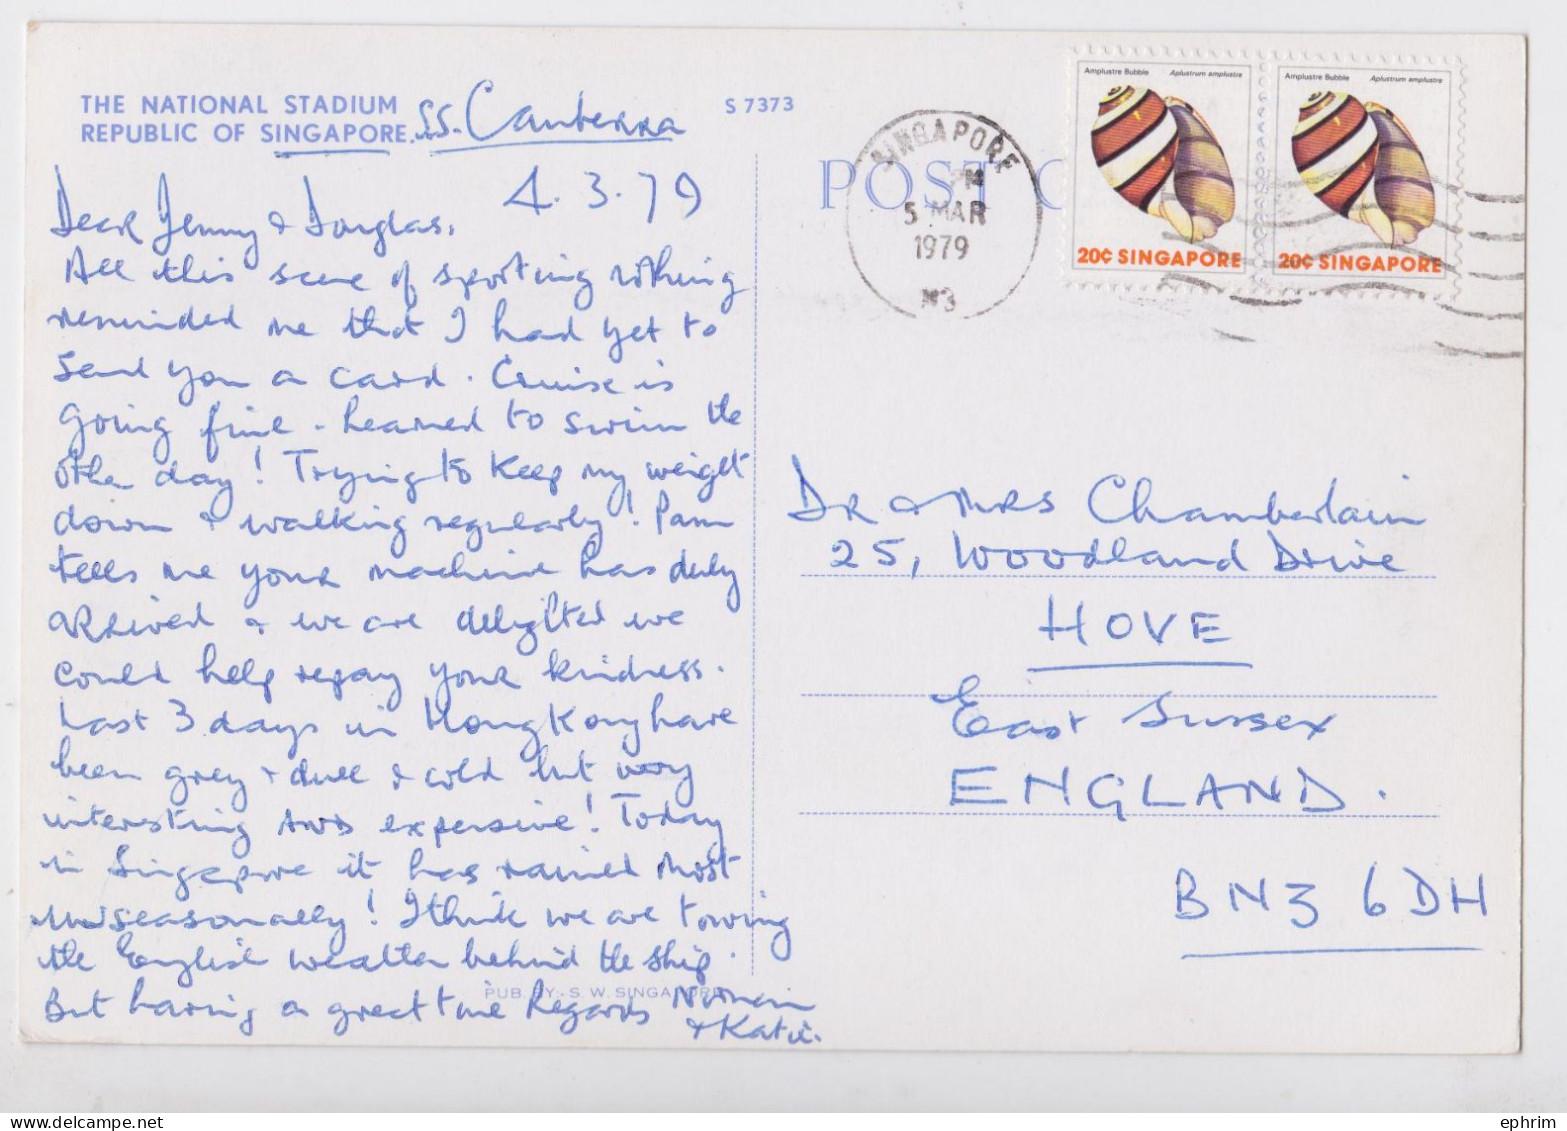 THE NATIONAL STADIUM
REPUBLIC OF SINGAPORE.
SS. Canberra
S 7373
4.3.79
Dear Jenny & Douglas,
All this scene of sporting nothing
reminded me that I had yet to
send you a card. Cruise is
going fine - learned to swim the
other day! Trying to keep my weight
down & walking regularly! Pam
tells me your machine has duly
arrived & we are delighted we
could help repay your kindness.
Last 3 days in Hong Kong have
been grey & dull & cold but very
interesting AND expensive! Today
in Singapore it has rained most
unseasonally! I think we are towing
the English weather behind the ship.
But having a great time Regards Norman
& Katie.
PUB. BY:- S. W. SINGAPORE
POST C
SINGAPORE
PM
5 MAR
1979
Amplustre Bubble Aplustrum amplustre
20¢ SINGAPORE
Amplustre Bubble Aplustrum amplustre
20¢ SINGAPORE
DR & MRS Chamberlain
25, Woodland Drive
HOVE
East Sussex
ENGLAND.
BN3 6DH
ephrim